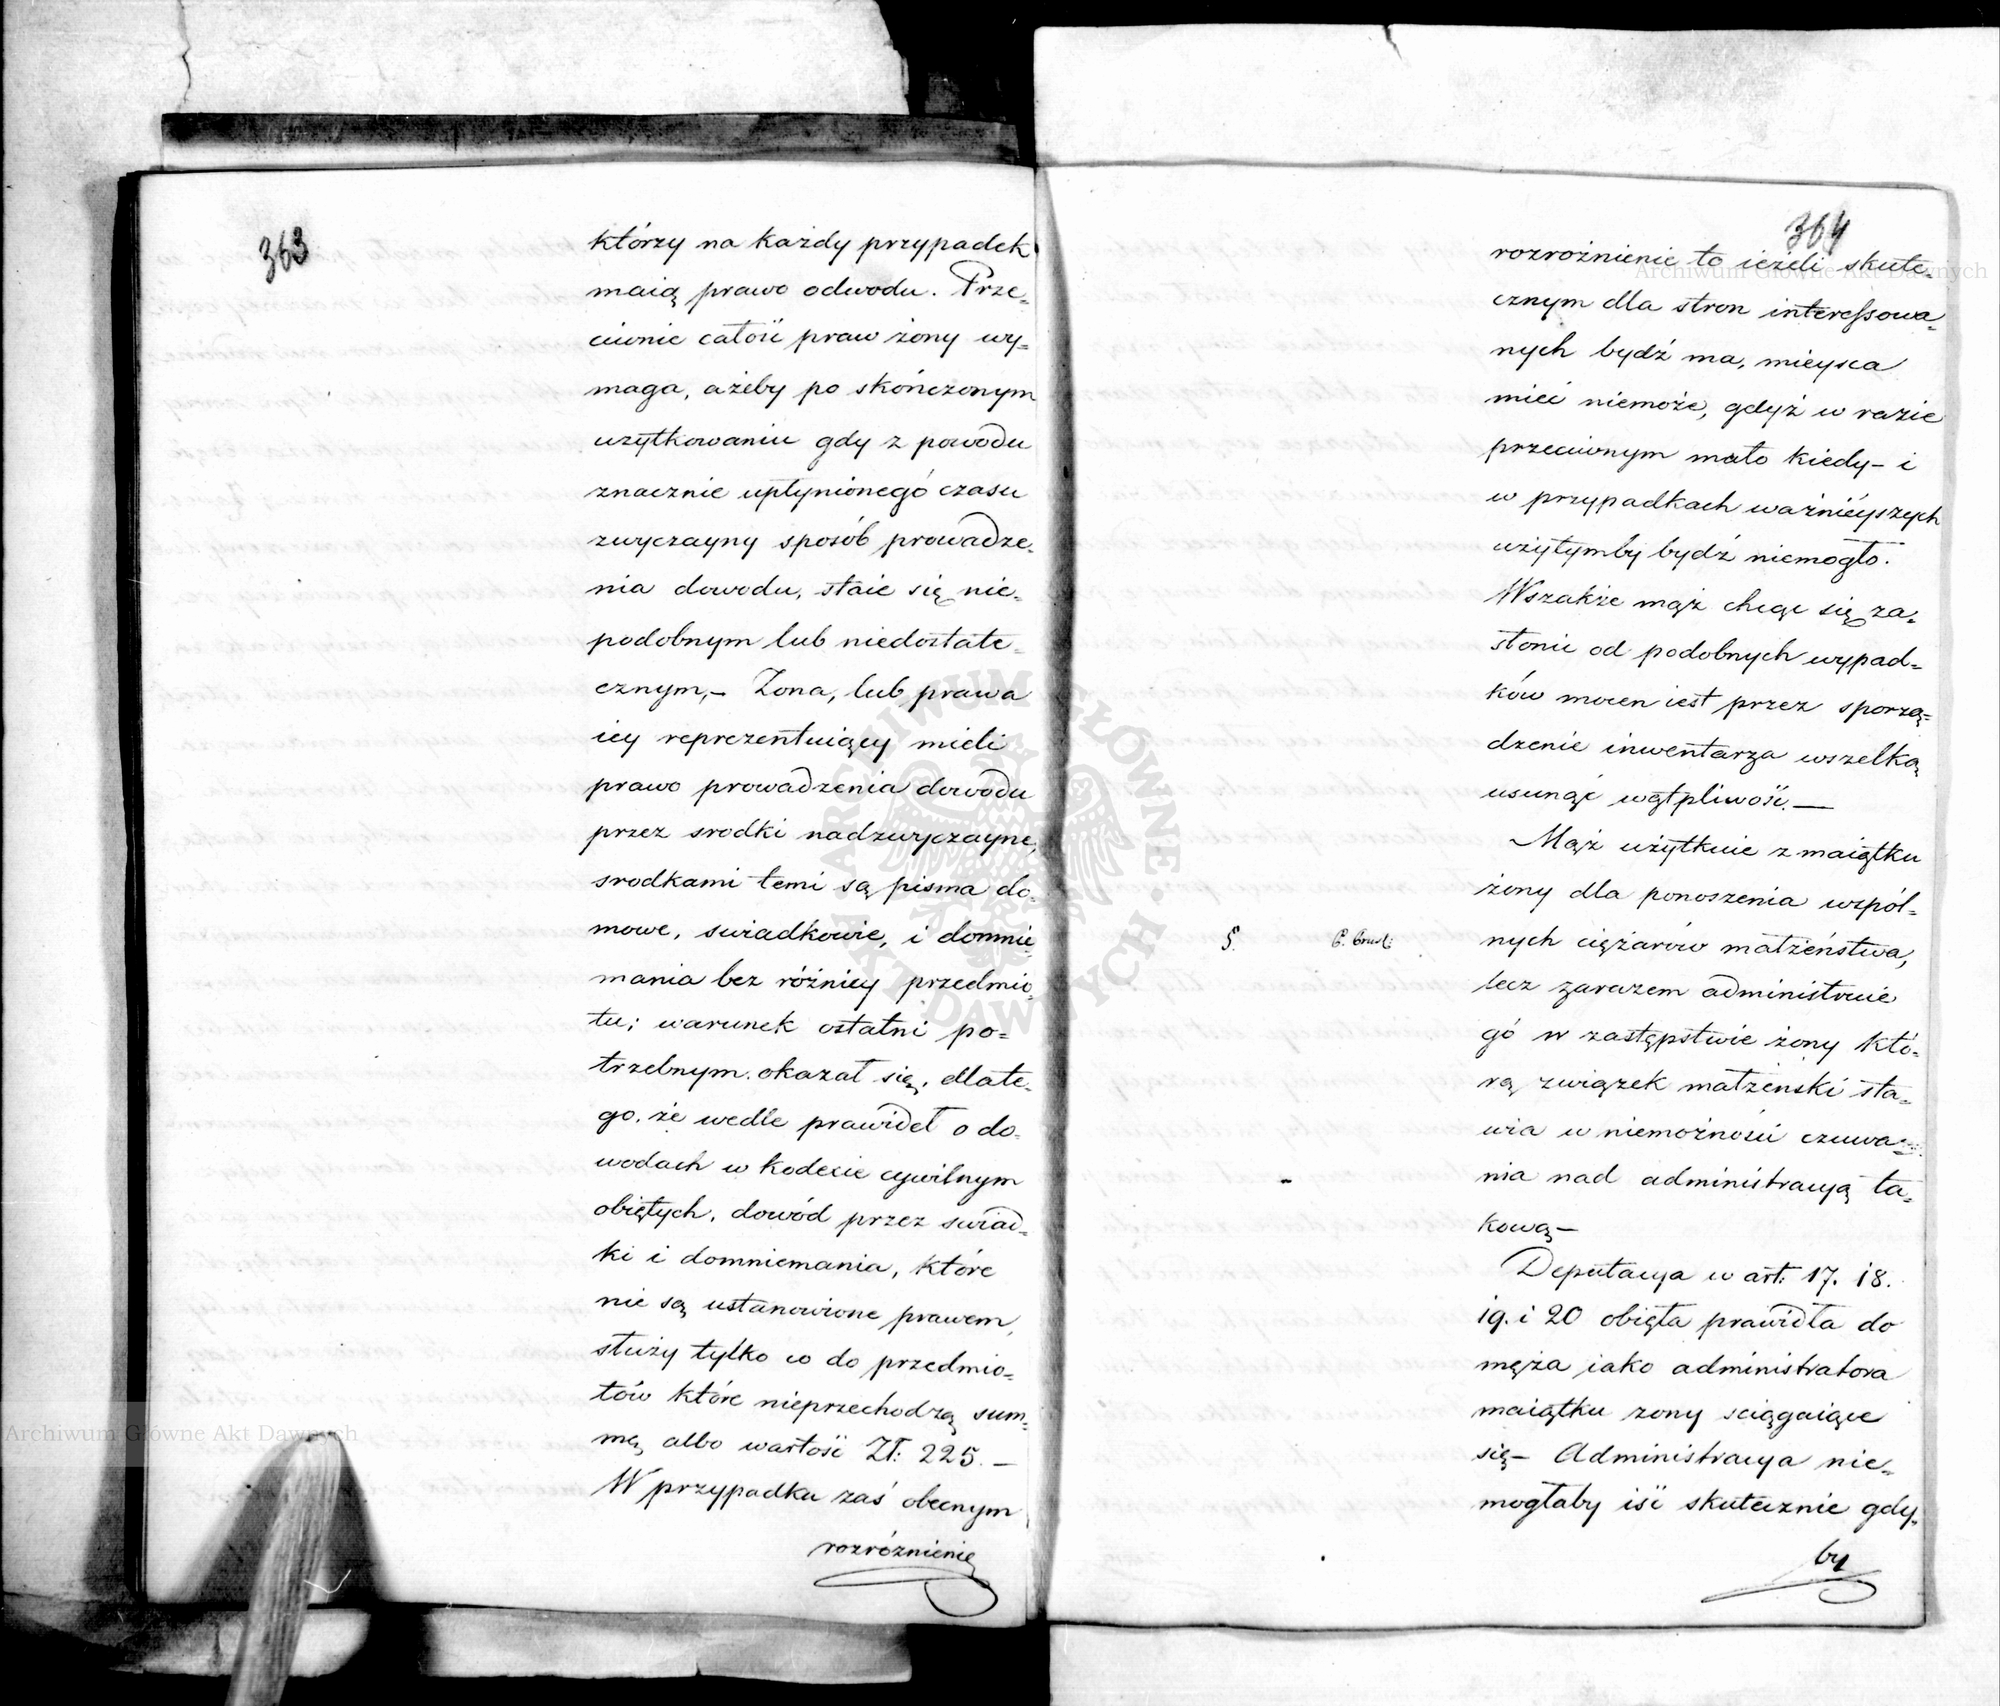 363
którzy na każdy przypadek
maią prawo odwodu. Prze=
ciwnie całość praw żony wy=
maga, ażeby po skończonym
użytkowaniu gdy z powodu
znacznie upłynionegó czasu
zwyczayny sposób prowadze=
nia dowodu, staie się nie=
podobnym lub niedostate=
cznym,– Żona, lub prawa
iey reprezentuiący mieli
prawo prowadzenia dowodu
przez srodki nadzwyczayne,
srodkami temi są pisma do=
mowe, swiadkowie, i domnie=
mania bez różnicy przedmio=
tu; warunek ostatni po=
trzebnym okazał się, dlate=
go, że wedle prawideł o do=
wodach w kodexie cywilnym
obiętych, dowód przez swiad=
ki i domniemania, które
nie są ustanowione prawem,
służy tylko co do przedmio=
tów które nieprzechodzą sum=
mę albo wartość Zł: 225.–
W przypadku zaś obecnym
rozróżnienie
364
rozrożnienie to ieżeli skute=
cznym dla stron interessowa=
nych bydź ma, mieysca
mieć niemoże, gdyż w razie
przeciwnym mało kiedy– i
w przypadkach ważnieyszych
użytymby bydź niemogło.
Wszakże mąż chcąc się za=
słonić od podobnych wypad=
ków mocen iest przez sporzą=
dzenie inwentarza wszelką
usunąć wątpliwość.—
Mąż użytkuie z maiątku
żony dla ponoszenia wspól=
nych ciężarów małżeństwa,
lecz zarazem administruie
gó w zastępstwie żony któ=
rą związek małżenski sta=
wia w niemożności czuwa=
nia nad administracyą ta=
kową–
Deputacya w art: 17. 18.
19. i 20 obięła prawidła do
męża iako administratora
maiątku zony sciągaiące
się– Administracya nie=
mogłaby iść skutecznie gdy=
by
Archiwum Główne Akt Dawnych
Archiwum Główne Akt Dawnych
ARCHIWUM GŁÓWNE AKT DAWNYCH